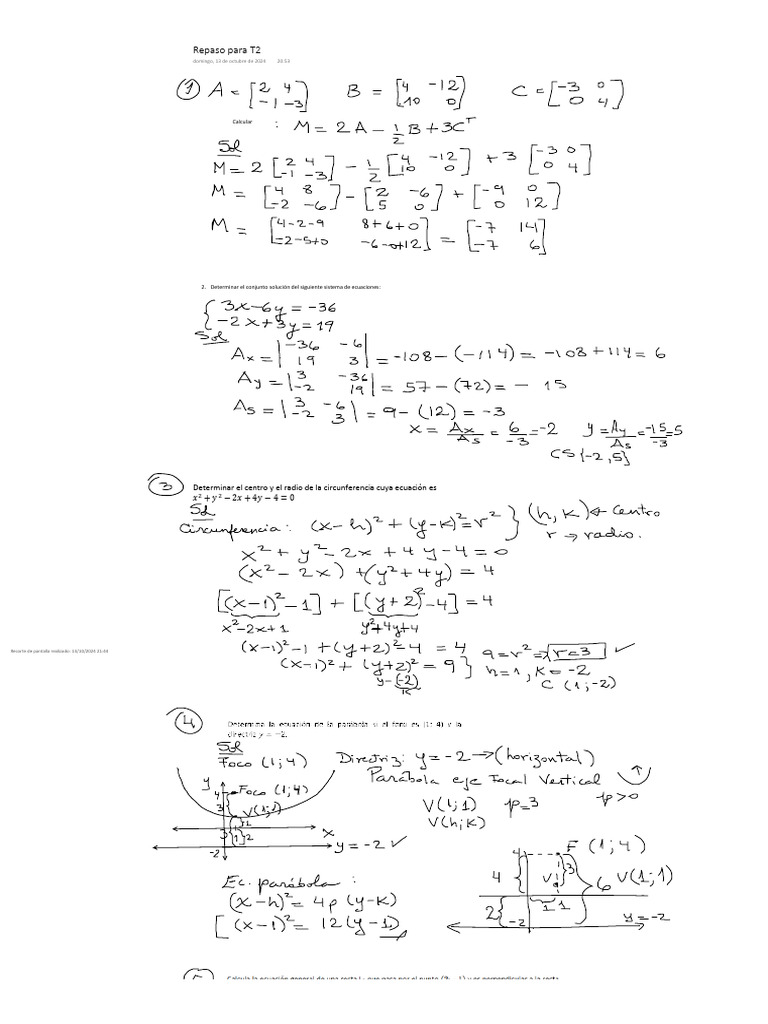 Repaso para T2
domingo, 13 de octubre de 2024 20:53
① A = [2 4; -1 -3] B = [4 -12; 10 0] C = [-3 0; 0 4]
Calcular : M = 2A - 1/2 B + 3C^T
Sol
M = 2 [2 4; -1 -3] - 1/2 [4 -12; 10 0] + 3 [-3 0; 0 4]
M = [4 8; -2 -6] - [2 -6; 5 0] + [-9 0; 0 12]
M = [4-2-9 8+6+0; -2-5+0 -6-0+12] = [-7 14; -7 6]
2. Determinar el conjunto solución del siguiente sistema de ecuaciones:
{ 3x-6y = -36
-2x+3y = 19
Sol
Ax = |-36 -6; 19 3| = -108 - (-114) = -108 + 114 = 6
Ay = |3 -36; -2 19| = 57 - (72) = - 15
As = |3 -6; -2 3| = 9 - (12) = -3
x = Ax/As = 6/-3 = -2 y = Ay/As = -15/-3 = 5
CS {-2, 5}
③ Determinar el centro y el radio de la circunferencia cuya ecuación es
x² + y² - 2x + 4y - 4 = 0
Sol
Circunferencia: (x-h)² + (y-k)² = r² } (h, k) ← centro
r → radio.
x² + y² - 2x + 4y - 4 = 0
(x² - 2x) + (y² + 4y) = 4
[(x-1)² - 1] + [(y+2)² - 4] = 4
x²-2x+1 y²+4y+4
(x-1)² - 1 + (y+2)² - 4 = 4
(x-1)² + (y+2)² = 9 } 9 = r² ⇒ r = 3 ✓
y-(-2) h = 1, k = -2
k C (1; -2)
Recorte de pantalla realizado: 13/10/2024 21:43
④ Determina la ecuación de la parábola si el foco es (1; 4) y la
directriz y = -2.
Sol
Foco (1; 4) Directriz: y = -2 → (horizontal)
Parábola eje Focal Vertical
p > 0
y
4 Foco (1; 4)
3 V(1; 1)
1 2
x
-2 y = -2 ✓
V(1; 1) p = 3
V(h; k)
F (1; 4)
4 4 V 3 6 V(1; 1)
1 1
2 -2 y = -2
Ec. parábola :
(x-h)² = 4p (y-k)
[ (x-1)² = 12 (y-1)
⑤ Calcula la ecuación general de una recta L que pasa por el punto